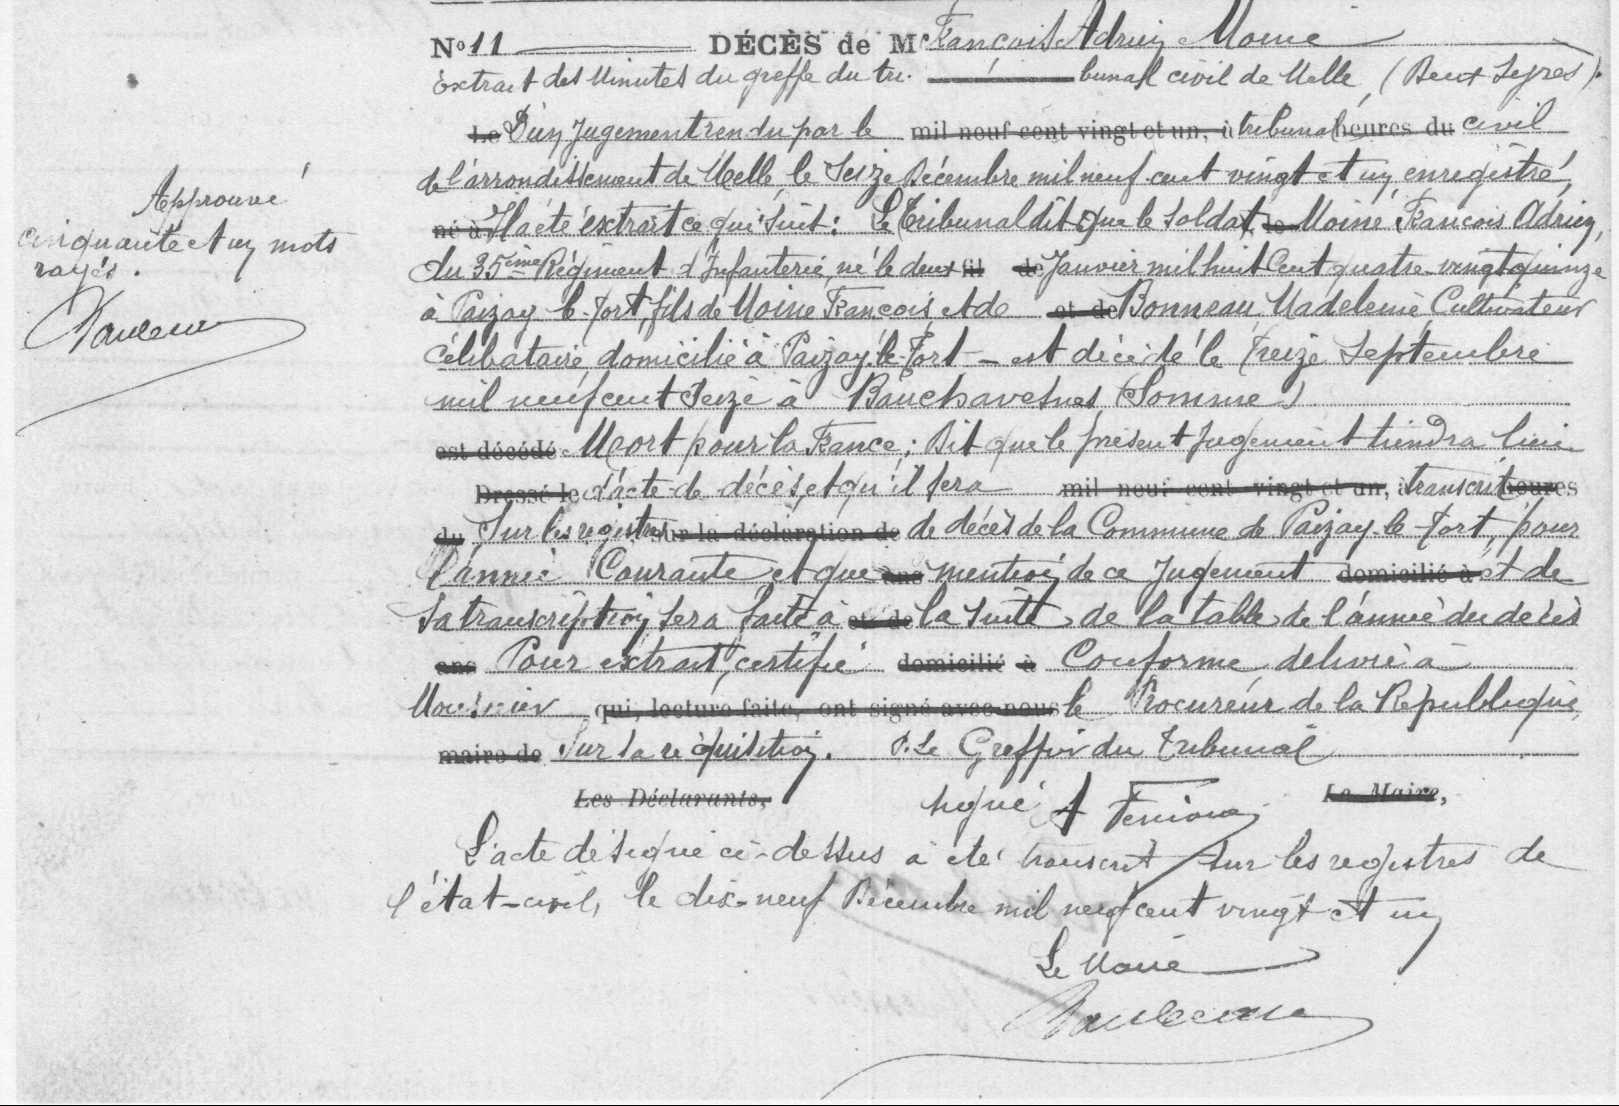 No 11 DÉCÈS de M François Adrien Moine
Extrait des Minutes du greffe du tri- bunal civil de Melle (Deux Sèvres).
Le D'un Jugement rendu par le mil neuf cent vingt et un, à tribunal heures du civil
de l'arrondissement de Melle, le Seize Décembre mil neuf cent vingt et un enregistré,
né à Il a été extrait ce qui suit: Le Tribunal dit que le Soldat, le Moine François Adrien,
du 35ème Régiment d'Infanterie, né le deux fil de Janvier mil huit Cent quatre-vingt quinze
à Paizay-le-Tort, fils de Moine François et de et de Bonneau Madeleine Cultivateur
Célibataire domicilié à Paizay-le-Tort — est décédé le Treize Septembre
mil neuf cent Seize à Bauchavesnes (Somme)
est décédé Mort pour la France; Dit que le présent Jugement tiendra lieu
Dressé le d'acte de décès, et qu'il sera mil neuf cent vingt et un, à transcrit heures
du Sur les registres sur la déclaration de de décès de la Commune de Paizay-le-Tort, pour
l'année Courante et que ans mention de ce Jugement domicilié à et de
sa transcription sera faite à et de la suite de la table de l'année du décès
ans Pour extrait, certifié domicilié à Conforme délivré à
Monsieur qui, lecture faite, ont signé avec nous le Procureur de la République,
maire de Sur sa réquisition. P. Le Greffier du Tribunal
Les Déclarants, signé A Le Maire,
L'acte désigné ci-dessus a été transcrit sur les registres de
l'état-civil, le dix-neuf Décembre mil neuf cent vingt et un
Le Maire
Approuvé
cinquante et un mots
rayés.